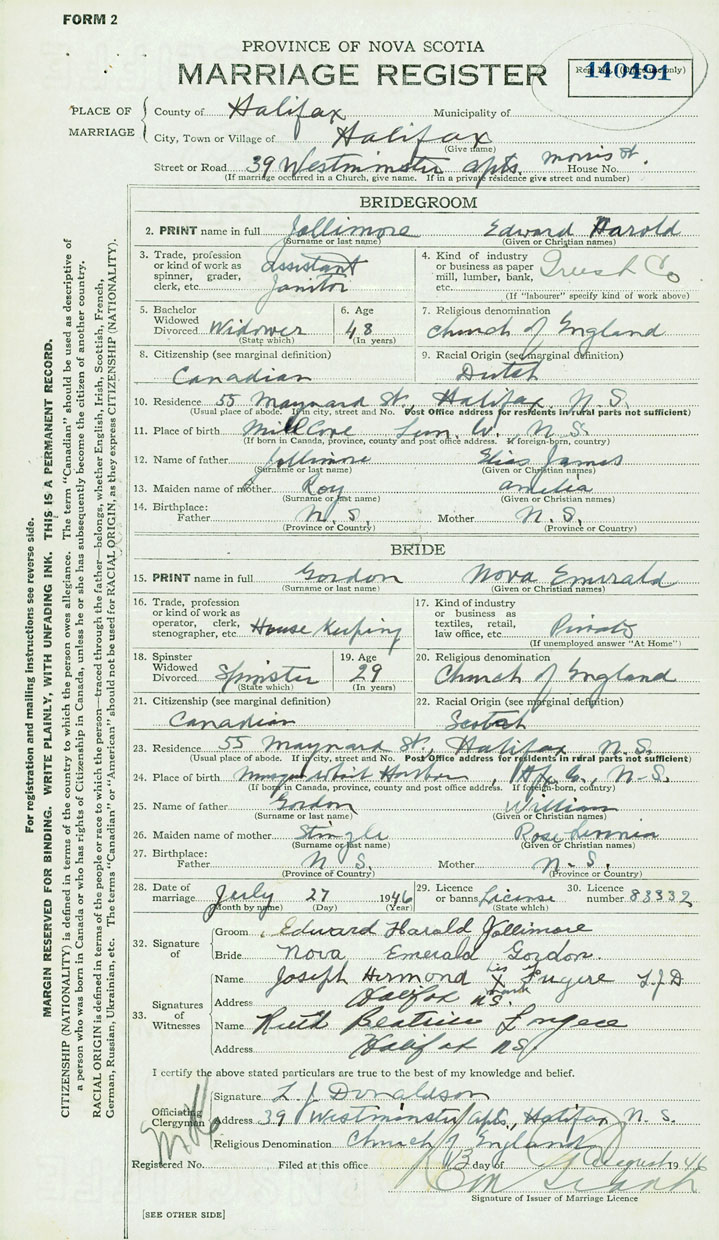 FORM 2
PROVINCE OF NOVA SCOTIA
MARRIAGE REGISTER
Reg. No. (Office use only)
140491
PLACE OF MARRIAGE
County of Halifax Municipality of
City, Town or Village of Halifax
(Give name)
Street or Road 39 Westminster apts. Morris St. House No.
(If marriage occurred in a Church, give name. If in a private residence give street and number)
BRIDEGROOM
2. PRINT name in full Jollimore Edward Harold
(Surname or last name) (Given or Christian names)
3. Trade, profession or kind of work as spinner, grader, clerk, etc. assistant Janitor
4. Kind of industry or business as paper mill, lumber, bank, etc. Co
(If "labourer" specify kind of work above)
5. Bachelor Widowed Divorced Widower
(State which)
6. Age 48
(In years)
7. Religious denomination
Church of England
8. Citizenship (see marginal definition)
Canadian
9. Racial Origin (see marginal definition)
Dutch
10. Residence 55 Maynard St., Halifax, N.S.
(Usual place of abode. If in city, street and No. Post Office address for residents in rural parts not sufficient)
11. Place of birth Mill Cove Lun. Co., N.S.
(If born in Canada, province, county and post office address. If foreign-born, country)
12. Name of father Jollimore Elias James
(Surname or last name) (Given or Christian names)
13. Maiden name of mother Roy Amelia
(Surname or last name) (Given or Christian names)
14. Birthplace:
Father N.S. Mother N.S.
(Province or Country) (Province or Country)
BRIDE
15. PRINT name in full Gordon Nova Emerald
(Surname or last name) (Given or Christian names)
16. Trade, profession or kind of work as operator, clerk, stenographer, etc. House Keeping
17. Kind of industry or business as textiles, retail, law office, etc. Private
(If unemployed answer "At Home")
18. Spinster Widowed Divorced Spinster
(State which)
19. Age 29
(In years)
20. Religious denomination
Church of England
21. Citizenship (see marginal definition)
Canadian
22. Racial Origin (see marginal definition)
Scotch
23. Residence 55 Maynard St., Halifax N.S.
(Usual place of abode. If in city, street and No. Post Office address for residents in rural parts not sufficient)
24. Place of birth Harbor, Hfx Co., N.S.
(If born in Canada, province, county and post office address. If foreign-born, country)
25. Name of father Gordon William
(Surname or last name) (Given or Christian names)
26. Maiden name of mother Stingle Rose
(Surname or last name) (Given or Christian names)
27. Birthplace:
Father N.S. Mother N.S.
(Province of Country) (Province or Country)
28. Date of marriage July 27 1946
(Month by name) (Day) (Year)
29. Licence or banns License
(State which)
30. Licence number 83332
32. Signature of
Groom Edward Harald Jollimore
Bride Nova Emerald Gordon.
33. Signatures of Witnesses
Name Joseph Hermond his X mark Fugere L.J.D
Address Halifax N.S.
Name Ruth Beatrice Fugere
Address Halifax N.S.
I certify the above stated particulars are true to the best of my knowledge and belief.
Officiating Clergyman
Signature L. J. Donaldson
Address 39 Westminster apts., Halifax, N.S.
Religious Denomination Church of England
Registered No. Filed at this office 13 day of August 1946
Signature of Issuer of Marriage Licence
[SEE OTHER SIDE]
For registration and mailing instructions see reverse side.
MARGIN RESERVED FOR BINDING. WRITE PLAINLY, WITH UNFADING INK. THIS IS A PERMANENT RECORD.
CITIZENSHIP (NATIONALITY) is defined in terms of the country to which the person owes allegiance. The term "Canadian" should be used as descriptive of
a person who was born in Canada or who has rights of Citizenship in Canada, unless he or she has subsequently become the citizen of another country.
RACIAL ORIGIN is defined in terms of the people or race to which the person—traced through the father—belongs, whether English, Irish, Scottish, French,
German, Russian, Ukrainian, etc. The terms "Canadian" or "American" should not be used for RACIAL ORIGIN, as they express CITIZENSHIP (NATIONALITY).